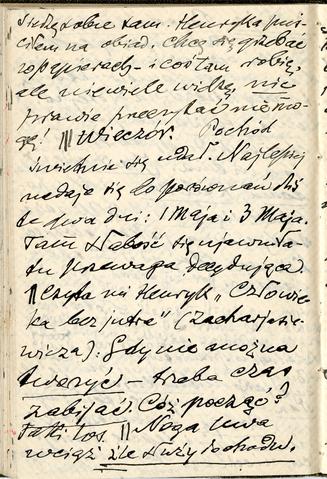 Siedzę sobie sam. Henryka puś-
ciłem na obiad. Chcę się grzebać
w papierach – i coś tam robię,
ale niewiele widzę, nic
prawie przeczytać nie mo-
gę! || Wieczór. Pochód
świetnie się udał. Najlepiej
nadaje się do porównań dziś
te dwa dni: 1 Maja i 3 Maja.
Tam słabość się ujawniła –
tu przewaga decydująca.
|| Czyta mi Henryk „Człowie-
ka bez jutra" (Zacharjasie-
wicza). Gdy nie można
tworzyć – trzeba czas
zabijać. Cóż począć?
Taki los. || Noga lewa
wciąż źle służy do chodu.